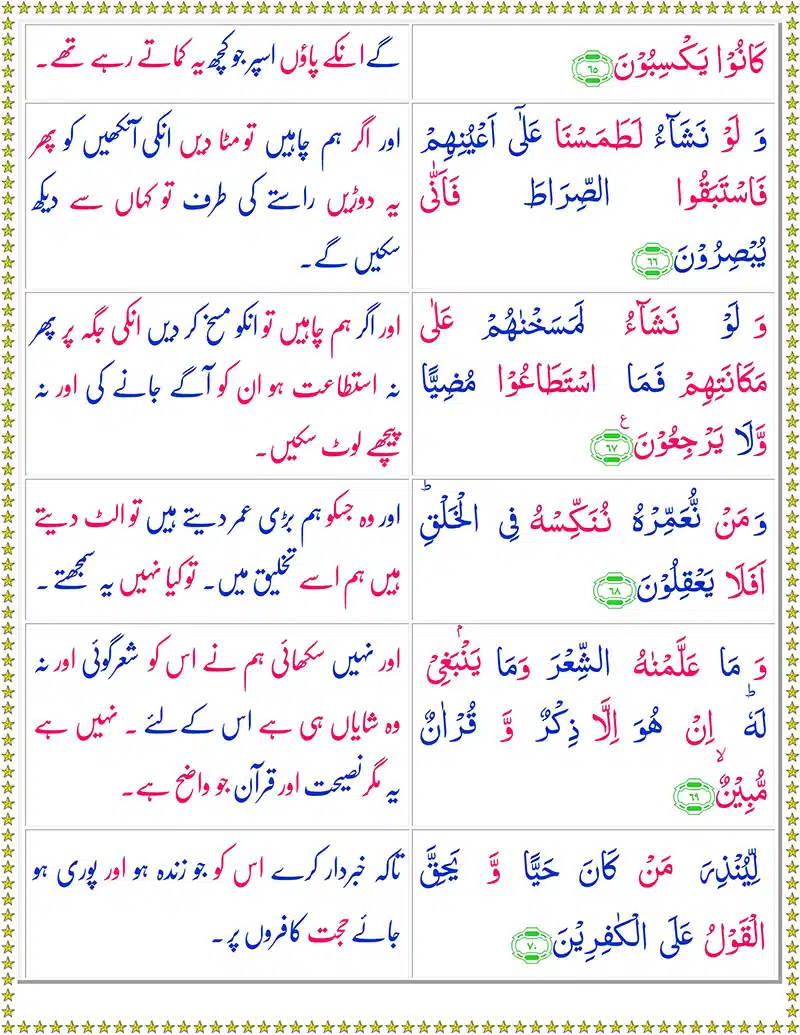 كَانُوْا يَكْسِبُوْنَ ﴿٦٥﴾
گے انکے پاؤں اسپر جو کچھ یہ کماتے رہے تھے۔
وَ لَوْ نَشَآءُ لَطَمَسْنَا عَلٰٓى اَعْيُنِهِمْ
فَاسْتَبَقُوا الصِّرَاطَ فَاَنّٰى
يُبْصِرُوْنَ ﴿٦٦﴾
اور اگر ہم چاہیں تو مٹا دیں انکی آنکھیں کو پھر
یہ دوڑیں راستے کی طرف تو کہاں سے دیکھ
سکیں گے۔
وَ لَوْ نَشَآءُ لَمَسَخْنٰهُمْ عَلٰى
مَكَانَتِهِمْ فَمَا اسْتَطَاعُوْا مُضِيًّا
وَّلَا يَرْجِعُوْنَ ﴿٦٧﴾ ع
اور اگر ہم چاہیں تو انکو مسخ کر دیں انکی جگہ پر پھر
نہ استطاعت ہو ان کو آگے جانے کی اور نہ
پیچھے لوٹ سکیں۔
وَ مَنْ نُّعَمِّرْهُ نُنَكِّسْهُ فِى الْخَلْقِ ؕ
اَفَلَا يَعْقِلُوْنَ ﴿٦٨﴾
اور وہ جسکو ہم بڑی عمر دیتے ہیں تو الٹ دیتے
ہیں ہم اسے تخلیق میں۔ تو کیا نہیں یہ سمجھتے۔
وَ مَا عَلَّمْنٰهُ الشِّعْرَ وَمَا يَنْۢبَغِىْ
لَهٗ ؕ اِنْ هُوَ اِلَّا ذِكْرٌ وَّ قُرْاٰنٌ
مُّبِيْنٌ ۙ ﴿٦٩﴾
اور نہیں سکھائی ہم نے اس کو شعر گوئی اور نہ
وہ شایاں ہی ہے اس کے لئے ۔ نہیں ہے
یہ مگر نصیحت اور قرآن جو واضح ہے۔
لِّيُنْذِرَ مَنْ كَانَ حَيًّا وَّ يَحِقَّ
الْقَوْلُ عَلَى الْكٰفِرِيْنَ ﴿٧٠﴾
تاکہ خبردار کرے اس کو جو زندہ ہو اور پوری ہو
جائے حجت کافروں پر۔